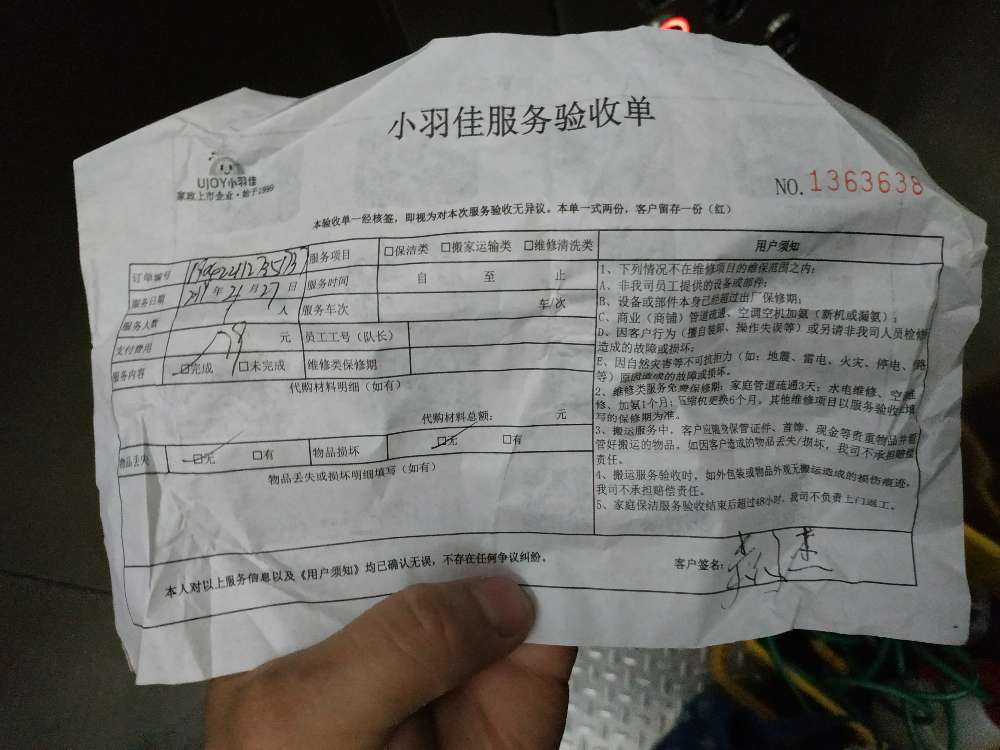 小羽佳服务验收单
UJOY小羽佳
家政上市企业·始于1999
NO.1363638
本验收单一经核签，即视为对本次服务验收无异议。本单一式两份，客户留存一份（红）
订单编号
服务项目 □保洁类 □搬家运输类 □维修清洗类
服务日期 年 月27日
服务时间 自 至 止
服务人数 人
服务车次 车/次
支付费用 元
员工工号（队长）
服务内容 □完成 □未完成
维修类保修期
代购材料明细（如有）
代购材料总额： 元
物品丢失 □无 □有
物品损坏 □无 □有
物品丢失或损坏明细填写（如有）
用户须知
1、下列情况不在维修项目的维保范围之内：
A、非我司员工提供的设备或部件；
B、设备或部件本身已经超过出厂保修期；
C、商业（商铺）管道疏通、空调空机加氨（新机或漏氨）；
D、因客户行为（擅自装卸、操作失误等）或另请非我司人员检修
造成的故障或损坏；
E、因自然灾害等不可抗拒力（如：地震、雷电、火灾、停电、
等）原因造成的故障或损坏。
2、维修类服务免费保修期：家庭管道疏通3天；水电维修、空调维
修、加氨1个月；压缩机更换6个月，其他维修项目以服务验收单填
写的保修期为准。
3、搬运服务中，客户应随身保管证件、首饰、现金等贵重物品并看
管好搬运的物品，如因客户造成的物品丢失/损坏，我司不承担赔偿
责任。
4、搬运服务验收时，如外包装或物品外观无搬运造成的损伤痕迹，
我司不承担赔偿责任。
5、家庭保洁服务验收结束后超过48小时，我司不负责上门返工。
本人对以上服务信息以及《用户须知》均已确认无误，不存在任何争议纠纷。
客户签名：